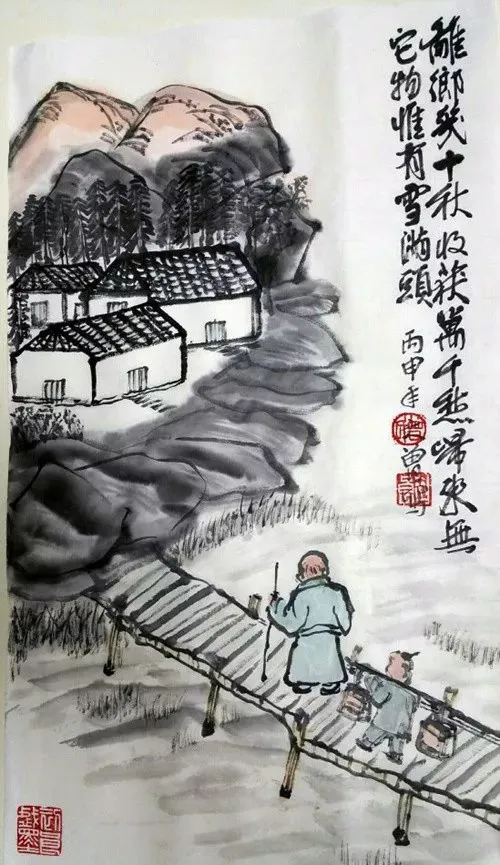 離鄉幾十秋收获萬千愁歸來無
它物惟有雪滿頭
丙申年
曾